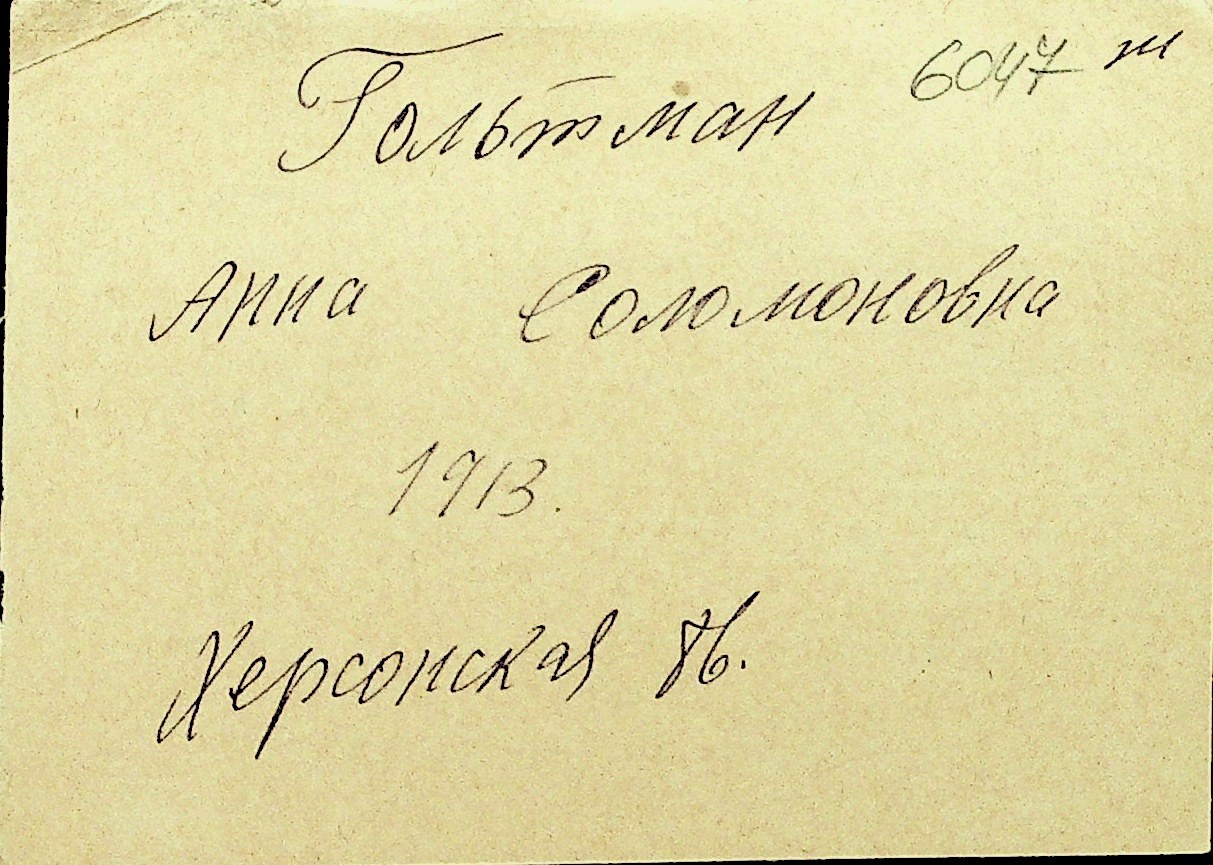 6047 т
Гольтман
Анна Соломоновна
1913.
Херсонская